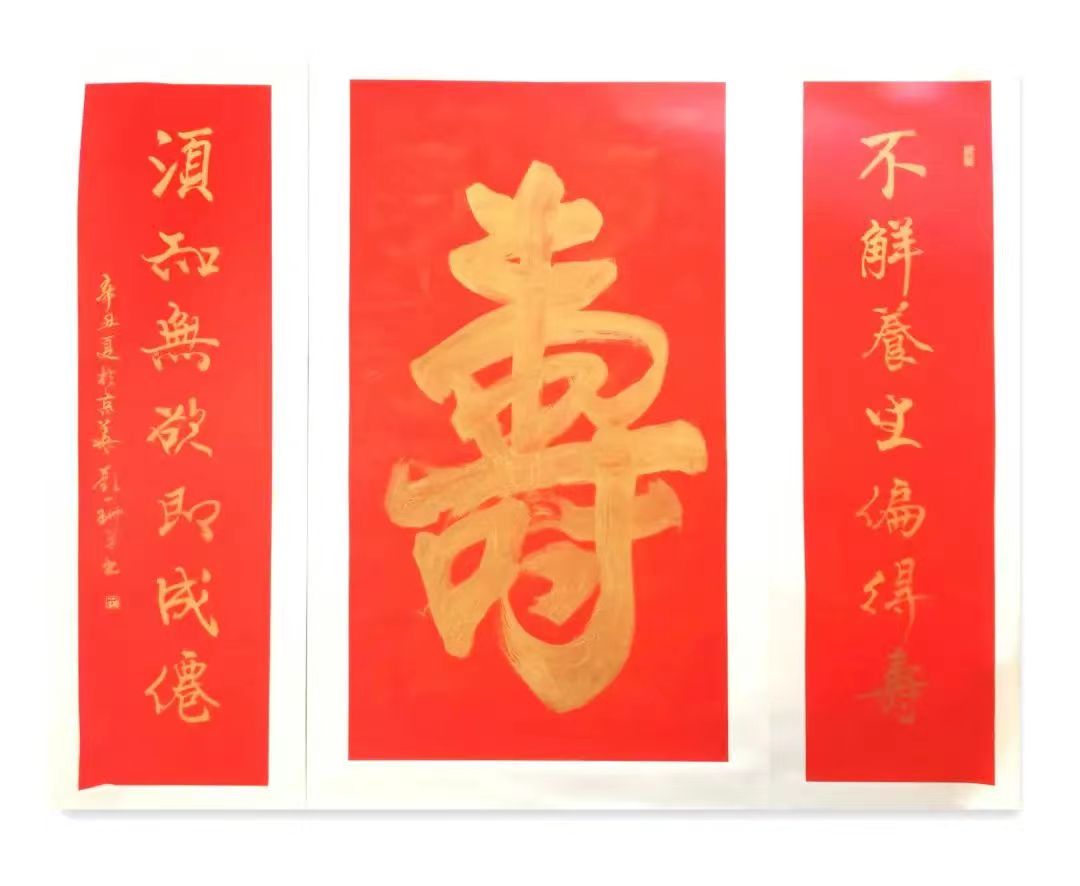 不解養生偏得壽
壽
須知無欲即成僊
辛丑夏於京華